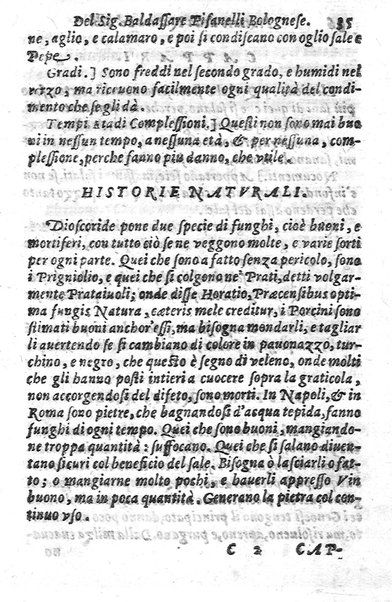 Del Sig. Baldassare Pisanelli Bolognese. 35
ne, aglio, e calamaro, e poi si condiscano con oglio sale e
Pepe.
Gradi.] Sono freddi nel secondo grado, e humidi nel
rzo, ma riceuono facilmente ogni qualità del condi-
mento che se gli dà.
Tempi Età di Complessioni.] Questi non sono mai buo
ni in nessun tempo, a nessuna età, & per nessuna, com-
plessione, perche fanno piu danno, che vtile.
HISTORIE NATVRALI.
Dioscoride pone due specie di funghi, cioè buoni, e
mortiferi, con tutto ciò se ne veggono molte, e varie sorti
per ogni parte. Quei che sono a fatto senza pericolo, sono
i Prigniolio, e quei che si colgono ne' Prati, detti volgar-
mente Prataiuoli; onde disse Horatio, Præcensibus opti-
ma fungis Natura, cæteris mele creditur, i Porcini sono
stimati buoni anchor'essi, ma bisogna mondarli, e tagliar
li auertendo se si cambiano di colore in pauonazzo, tur-
chino, e negro, che questo è segno di veleno, onde molti
che gli hanno posti intieri a cuocere sopra la graticola,
non accorgendosi del difeto, sono morti. In Napoli, & in
Roma sono pietre, che bagnandosi d'acqua tepida, fanno
funghi di ogni tempo. Quei che sono buoni, mangiando-
ne troppa quantità: suffocano. Quei che si salano diuen-
tano sicuri col beneficio del sale. Bisogna ò lasciarli o fat-
to; o mangiarne molto pochi, e bauerli appresso Vin
buono, ma in poca quantità. Generano la pietra col con-
tinuo vso.
C 2 CAP-